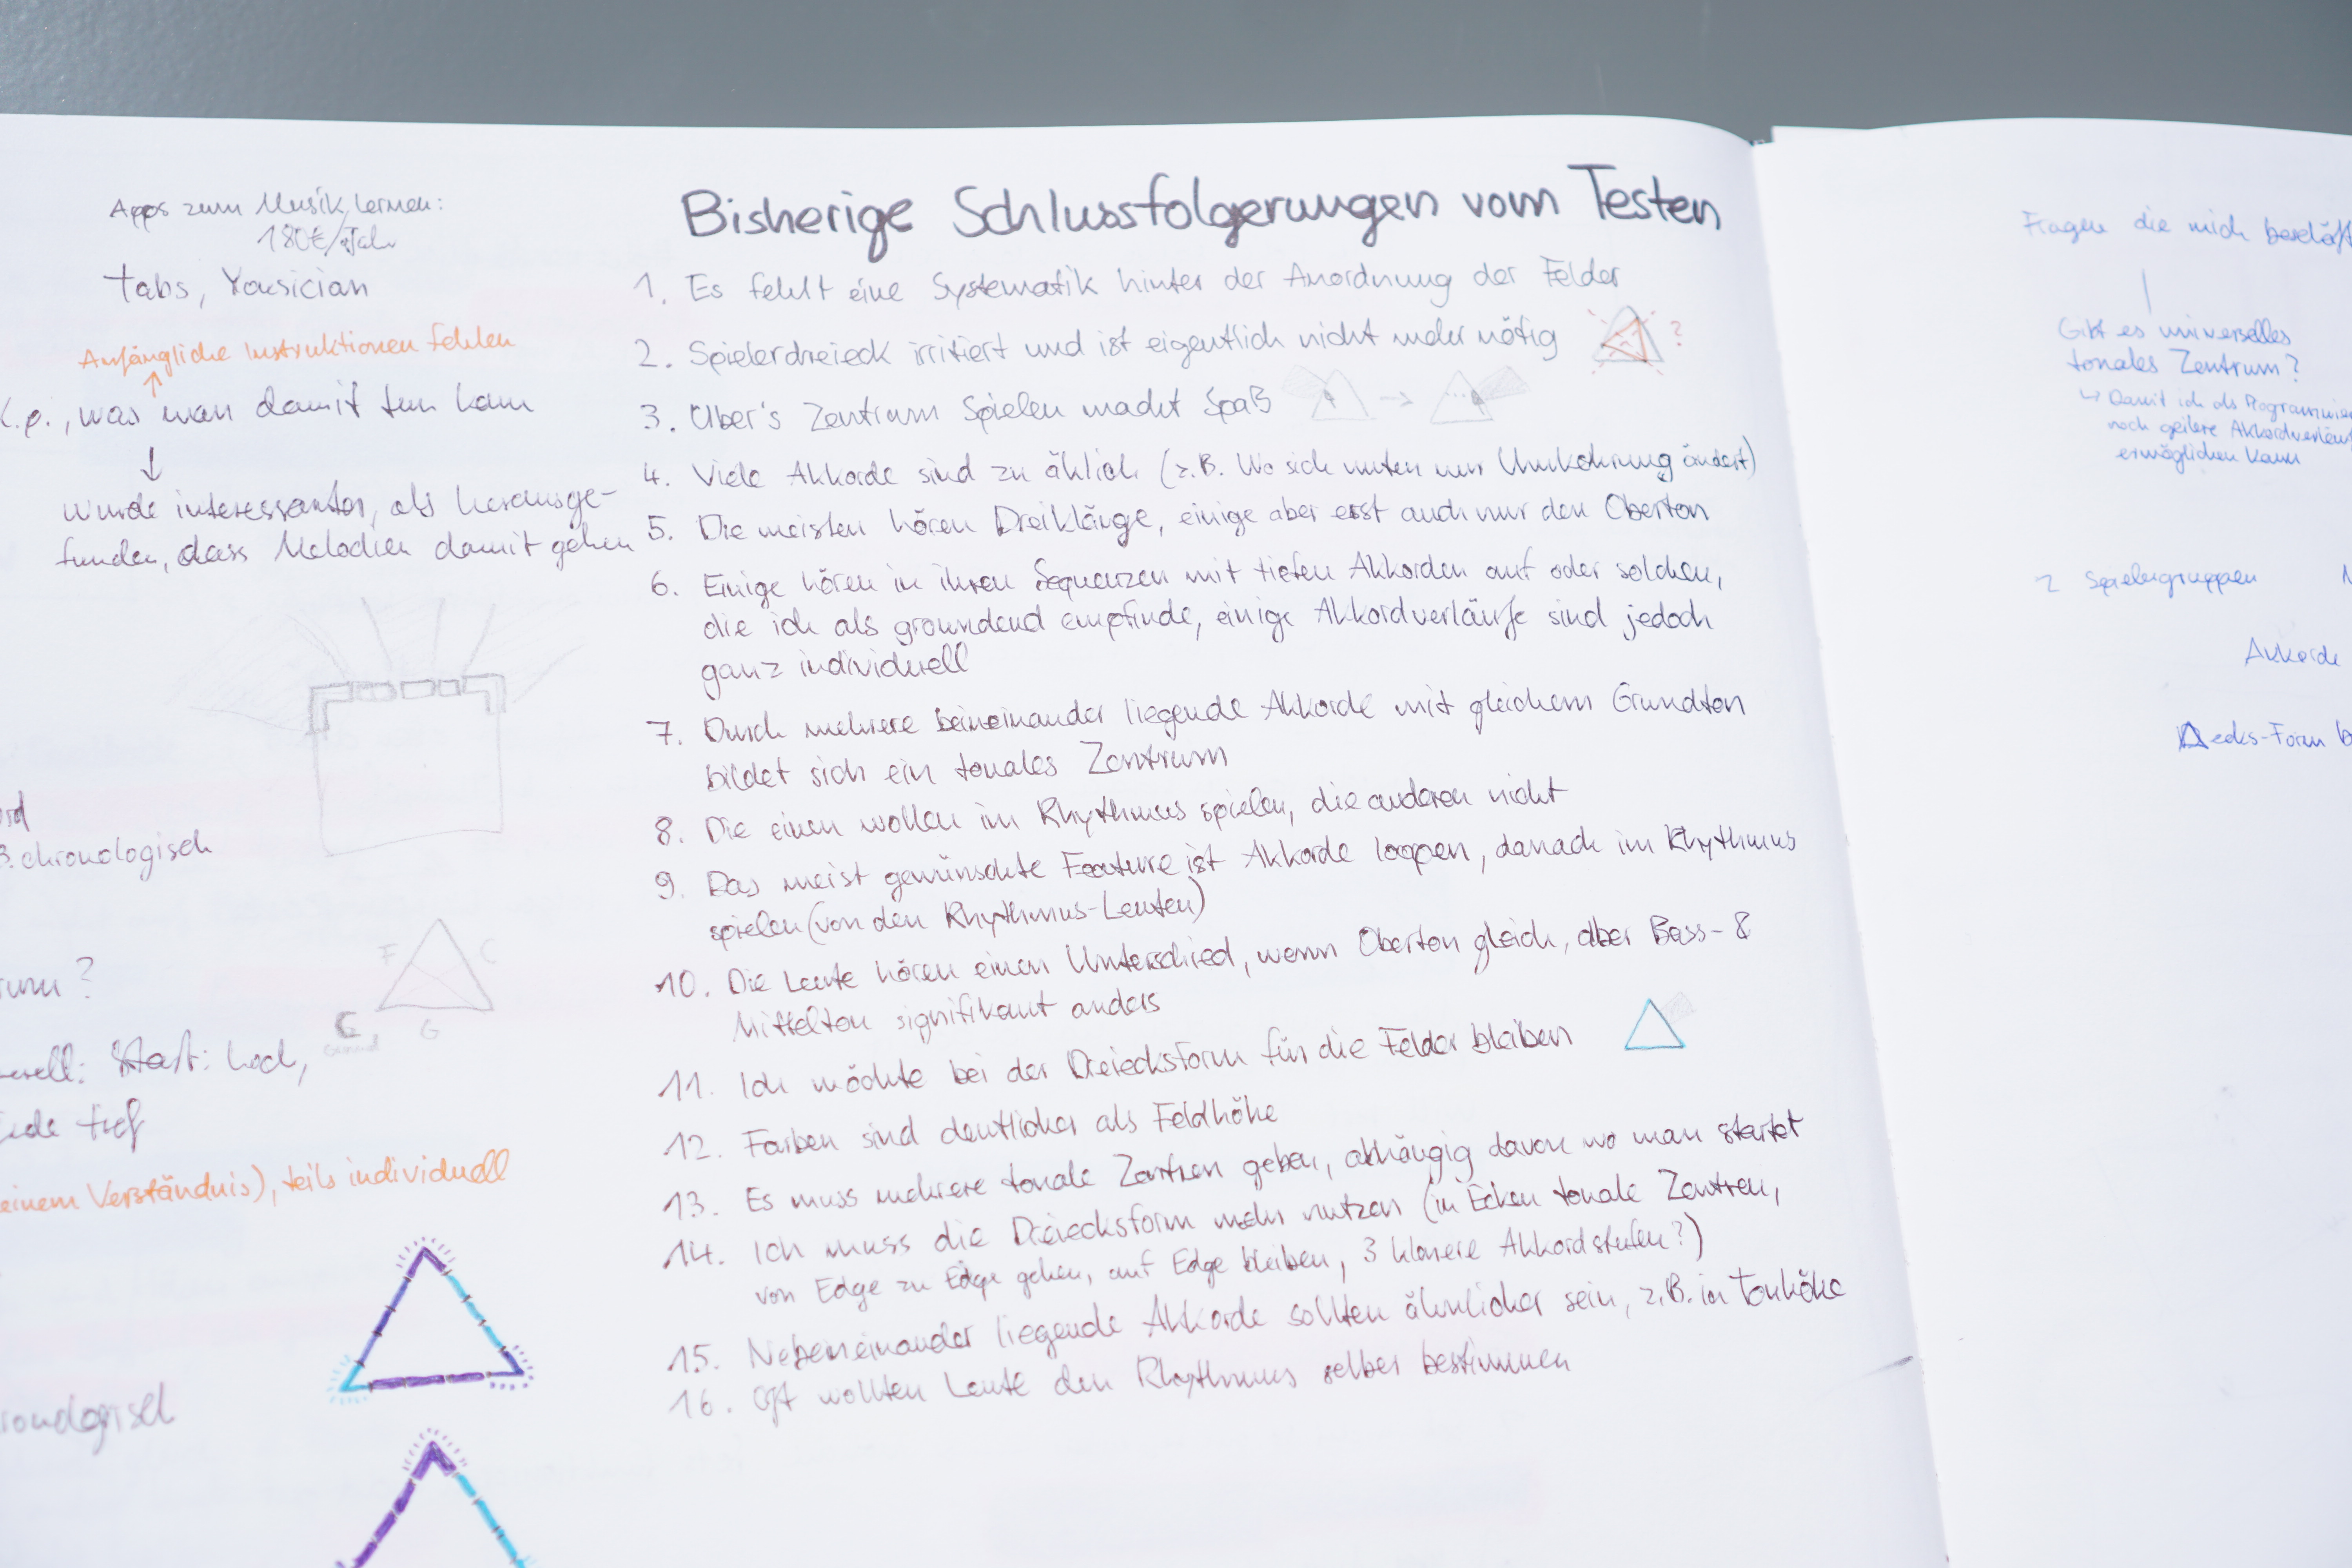 Apps zum Musik lernen:
180€/Jahr
Tabs, Yousician
Anfängliche Instruktionen fehlen
was man damit tun kann
Wurde interessanter, als herausge-
funden, dass Melodien damit gehen
chronologisch
F C
C G
Start: hoch,
tief
einem Verständnis), teils individuell
Bisherige Schlussfolgerungen vom Testen
1. Es fehlt eine Systematik hinter der Anordnung der Felder
2. Spielerdreieck irritiert und ist eigentlich nicht mehr nötig ?
3. Über's Zentrum Spielen macht Spaß
4. Viele Akkorde sind zu ählich (z.B. Wo sich unten nur Umkehrung ändert)
5. Die meisten hören Dreiklänge, einige aber erst auch nur den Oberton
6. Einige hören in ihren Sequenzen mit tiefen Akkorden auf oder solchen,
die ich als groundend empfinde, einige Akkordverläufe sind jedoch
ganz individuell
7. Durch mehrere beineinander liegende Akkorde mit gleichem Grundton
bildet sich ein tonales Zentrum
8. Die einen wollen im Rhythmus spielen, die anderen nicht
9. Das meist gewünschte Feature ist Akkorde loopen, danach im Rhythmus
spielen (von den Rhythmus-Leuten)
10. Die Leute hören einen Unterschied, wenn Oberton gleich, aber Bass- &
Mittelton signifikant anders
11. Ich möchte bei der Dreiecksform für die Felder bleiben
12. Farben sind deutlicher als Feldhöhe
13. Es muss mehrere tonale Zentren geben, abhängig davon wo man startet
14. Ich muss die Dreiecksform mehr nutzen (in Ecken tonale Zentren,
von Edge zu Edge gehen, auf Edge bleiben, 3 klarere Akkordstufen?)
15. Nebeneinander liegende Akkorde sollten ähnlicher sein, z.B. in Tonhöhe
16. Oft wollten Leute den Rhythmus selber bestimmen
Fragen die mich
Gibt es universelles
tonales Zentrum?
Damit ich als
noch geilere
ermöglichen kann
2 Spielergruppen
Akkorde
ecks-Form